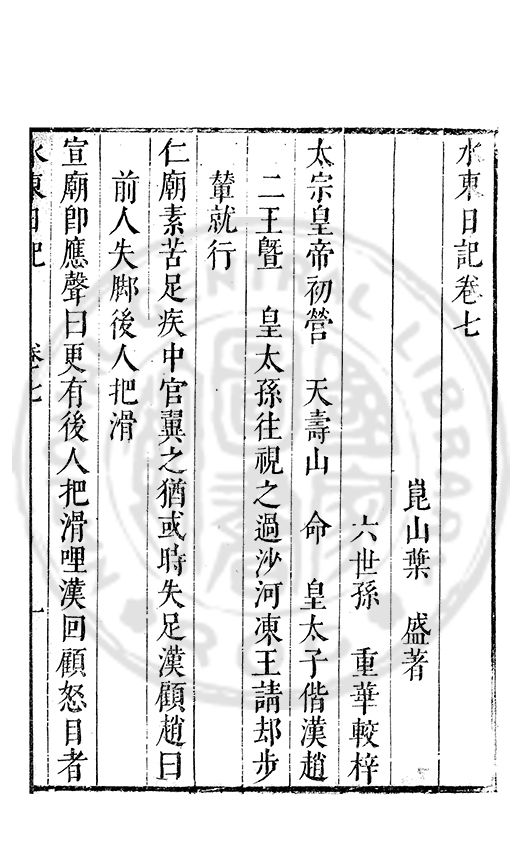 水東日記卷七
崑山葉　盛著
六世孫　重華較梓
太宗皇帝初營　天壽山　命　皇太子偕漢趙
二王暨　皇太孫往視之過沙河凍王請却步
輦就行
仁廟素苦足疾中官翼之猶或時失足漢顧趙曰
前人失脚後人把滑
宣廟卽應聲曰更有後人把滑哩漢回顧怒目者
水東日記　卷七　一